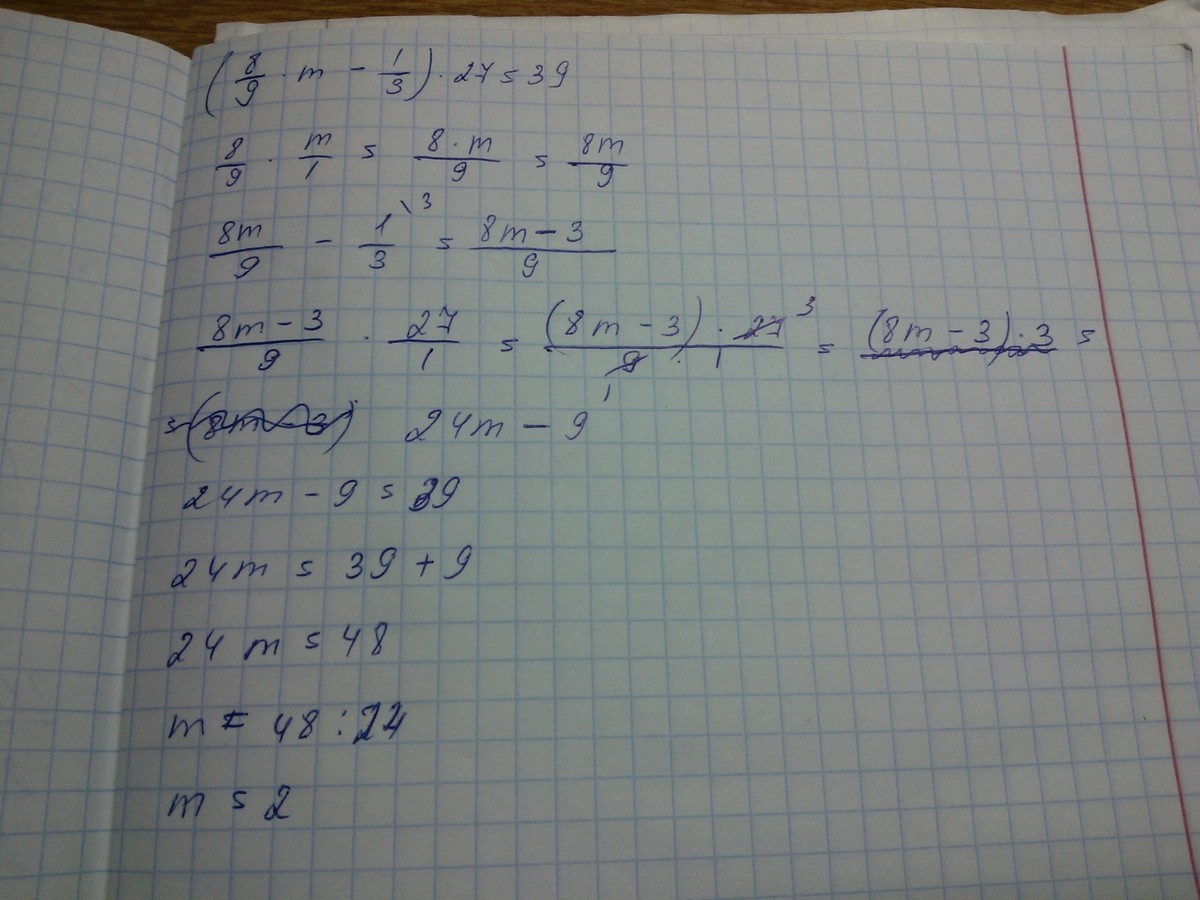 (8/9 · m − 1/3) · 27 = 39
8/9 · m/1 = 8 · m/9 = 8m/9
8m/9 − 1/3 \3 = 8m − 3/9
8m − 3/9 · 27/1 = (8m − 3) · 27 3/9 · 1 1 = (8m − 3) · 3 =
= (8m − 3) 24m − 9
24m − 9 = 39
24m = 39 + 9
24 m = 48
m = 48 : 24
m = 2